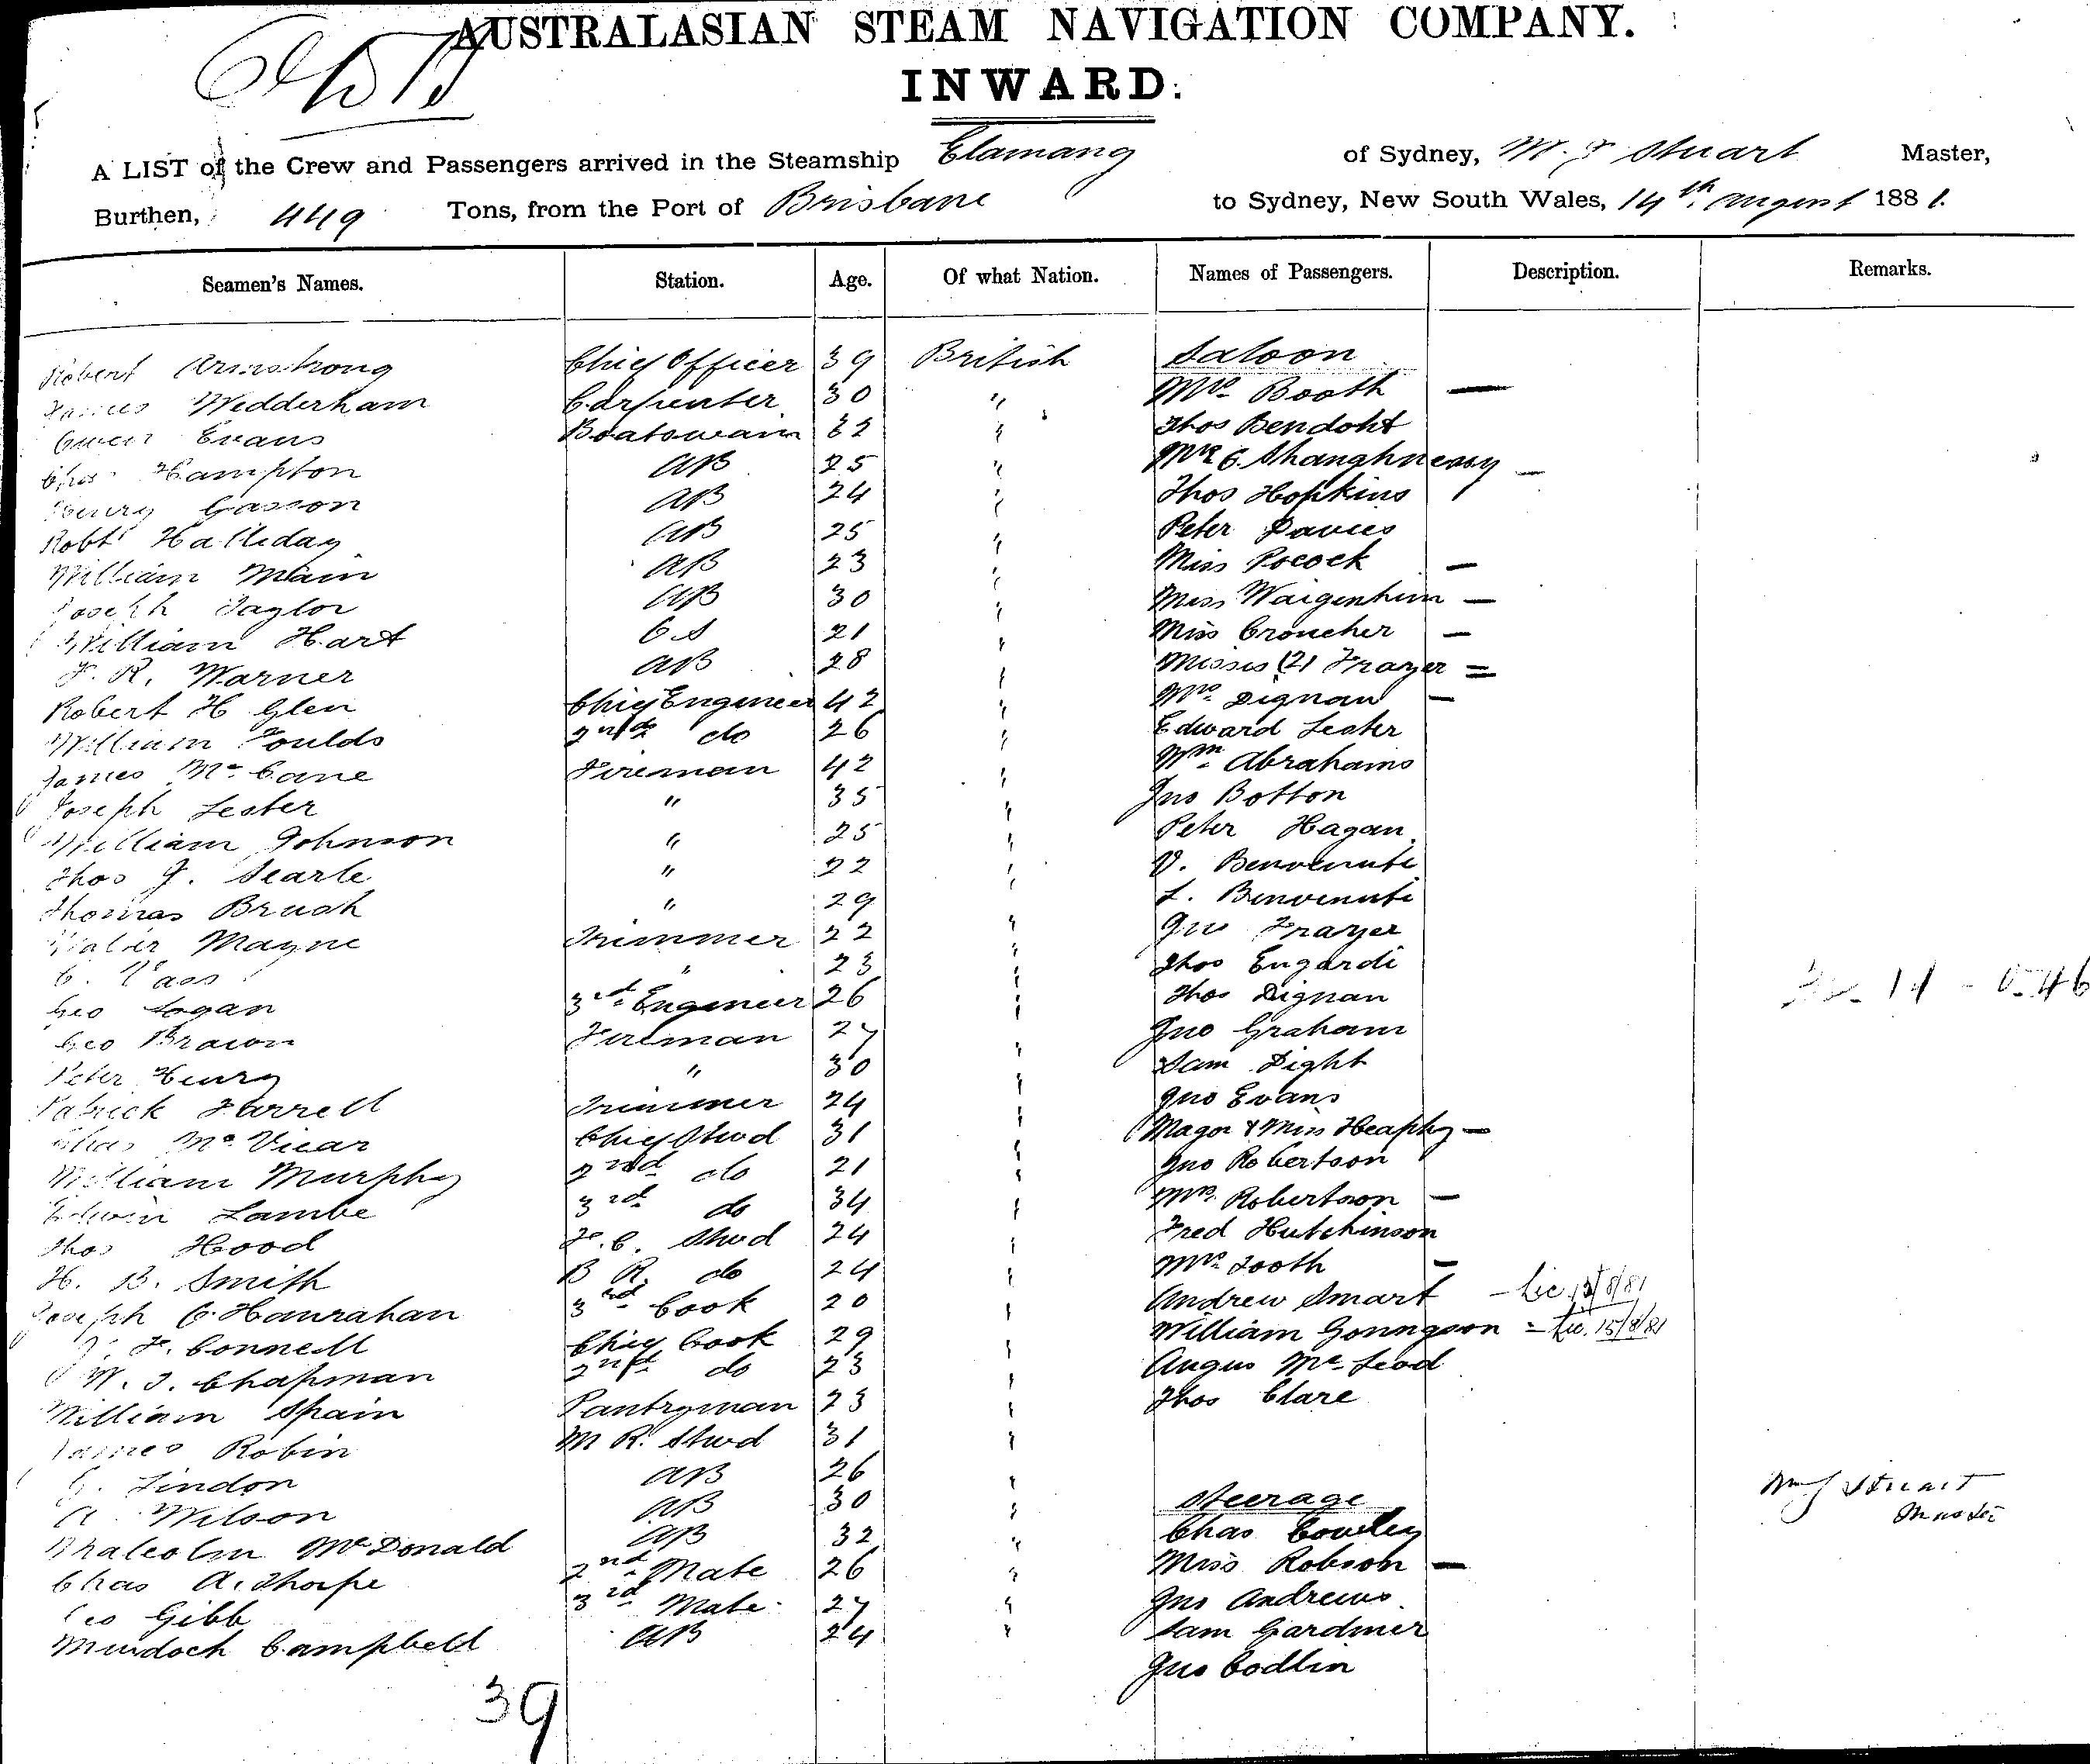 AUSTRALASIAN STEAM NAVIGATION COMPANY.
INWARD.
A LIST of the Crew and Passengers arrived in the Steamship Elamang of Sydney, W. J Stuart Master,
Burthen, 449 Tons, from the Port of Brisbane to Sydney, New South Wales, 14th August 1881.
Seamen's Names. Station. Age. Of what Nation. Names of Passengers. Description. Remarks.
Robert Armstrong Chief Officer 39 British Saloon
James Wedderham Carpenter 30 " Mrs Booth —
Owen Evans Boatswain 32 " Thos Bendoht
Chas Hampton AB 25 " Mrs E. Shanghnessy —
Henry Gasson AB 24 " Thos Hopkins
Robt Halliday AB 25 " Peter Davies
William Main AB 23 " Miss Pocock —
Joseph Taylor AB 30 " Miss Waigenheim —
William Hart O.S 21 " Miss Croucher —
F. R. Warner AB 28 " Misses (2) Frayer =
Robert H Glen Chief Engineer 42 " Mrs Dignan —
William Foulds 2nd do 26 " Edward Lester
James McCane Fireman 42 " Wm Abrahams
Joseph Lester " 35 " Jno Botton
William Johnson " 25 " Peter Hagan
Thos J. Searle " 22 " V. Benvenuti
Thomas Brush " 29 " L. Benvenuti
Walter Mayne Trimmer 22 " Jno Frayer
C. Vass " 23 " Thos Eugardi
Geo Logan 3rd Engineer 26 " Thos Dignan
Geo Brown Fireman 27 " Jno Graham
Peter Henry " 30 " Sam Dight
Patrick Farrell Trimmer 24 " Jno Evans
Chas McVicar Chief Stwd 31 " Major & Miss Heaphy —
William Murphy 2nd do 21 " Jno Robertson
Edwin Lambe 3rd do 34 " Mrs Robertson —
Thos Hood F.C. Stwd 24 " Fred Hutchinson
H. B. Smith B R. do 24 " Mrs Tooth —
Joseph O'Hanrahan 3rd Cook 20 " Andrew Smart — Lic. 13/8/81
J. F. Connell Chief Cook 29 " William Gonngson = Lic. 15/8/81
W. J. Chapman 2nd do 23 " Angus McLeod
William Spain Pantryman 23 " Thos Clare
James Robin M R. Stwd 31 "
G. Lindon AB 26 "
A. Wilson AB 30 " Steerage
Malcolm McDonald AB 32 " Chas Cowley
Chas A. Thorpe 2nd Mate 26 " Miss Robson —
Geo Gibb 3rd Mate 27 " Jno Andrews
Murdoch Campbell AB 24 " Sam Gardiner
Jno Codlin
Wm J Stuart
Master
39